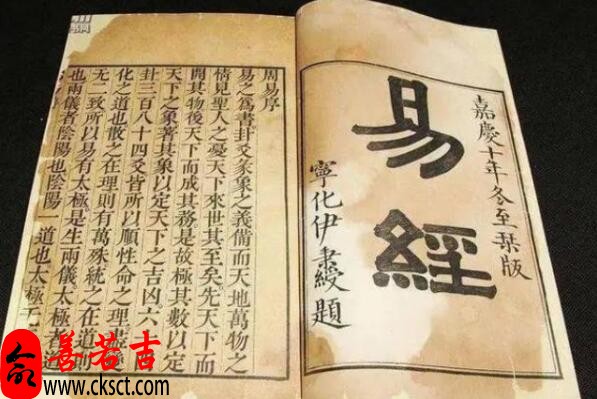 嘉慶十年冬至琹版
易經
寧化伊秉綬題
周易序
易之爲書卦爻彖象之義備而天地萬物之
情見聖人之憂天下來世其至矣先天下而
開其物後天下而成其務是故極其數以定
天下之象著其象以定天下之吉凶六
卦三百八十四爻皆所以順性命之理盡
化之道也散之在理則有萬殊統之在道則
無二致所以易有太極是生兩儀太極者道
也兩儀者陰陽也陰陽一道也太極
善若吉
www.cksct.com